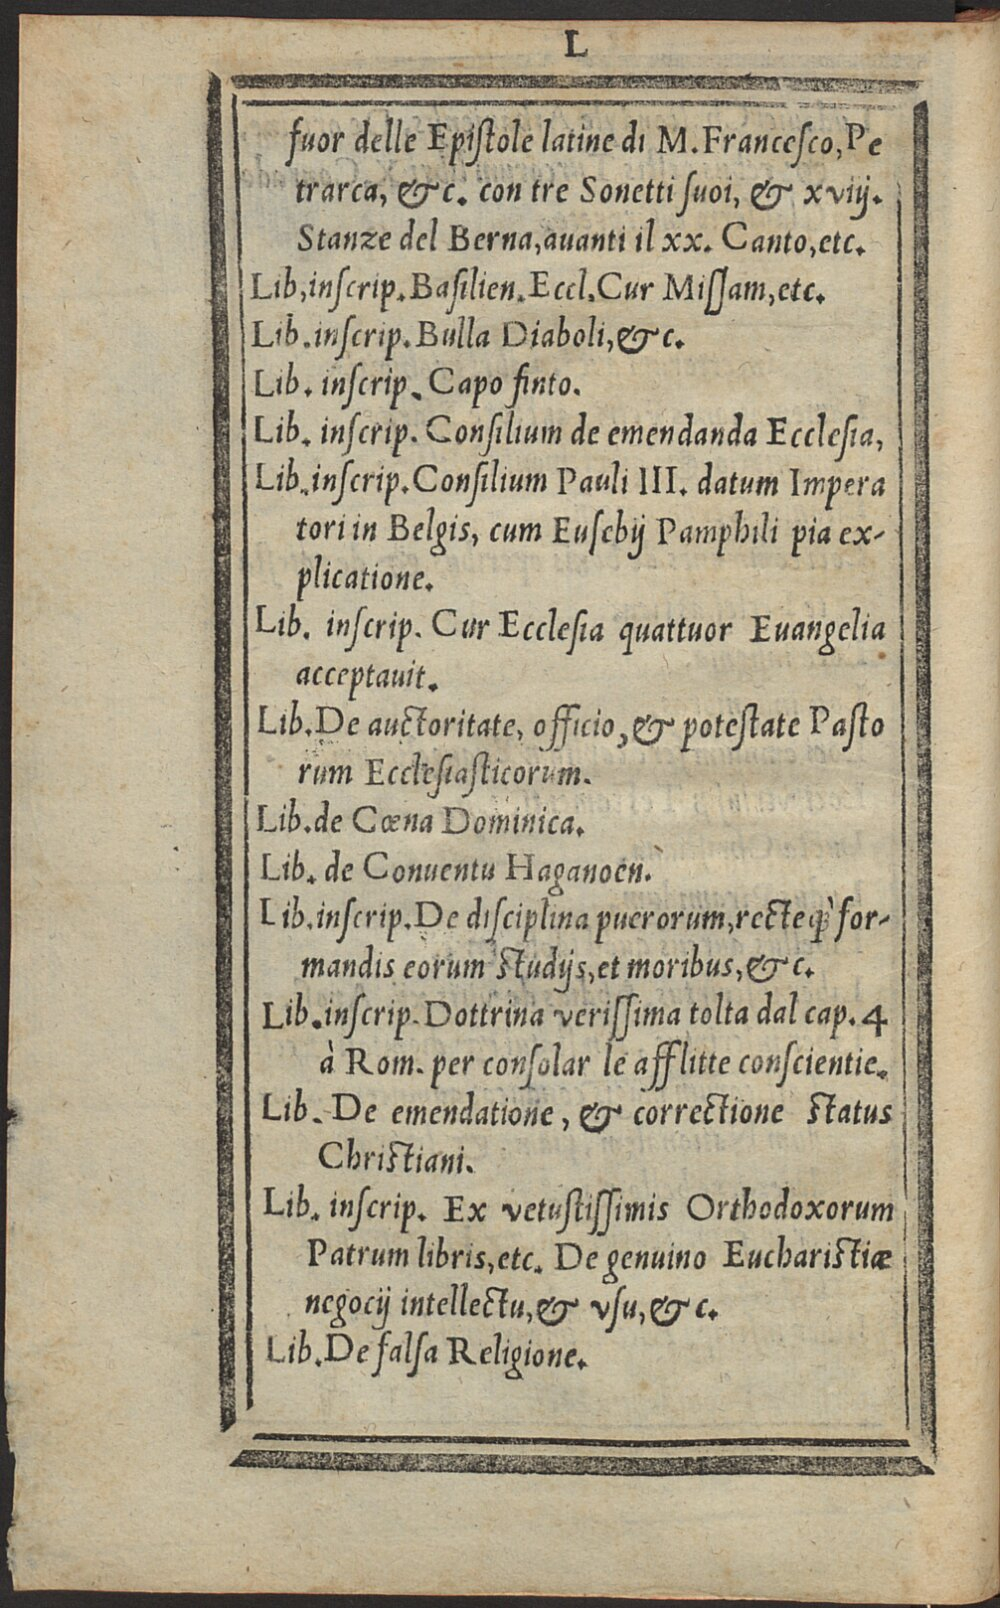 L
fuor delle Epiſtole latine di M. Franceſco, Pe
trarca, & c. con tre Sonetti ſuoi, & xviij.
Stanze del Berna, auanti il xx. Canto, etc.
Lib, inſcrip. Baſilien. Eccl. Cur Miſſam, etc.
Lib. inſcrip. Bulla Diaboli, & c.
Lib. inſcrip. Capo finto.
Lib. inſcrip. Conſilium de emendanda Eccleſia,
Lib. inſcrip. Conſilium Pauli III. datum Impera
tori in Belgis, cum Euſebij Pamphili pia ex-
plicatione.
Lib. inſcrip. Cur Eccleſia quattuor Euangelia
acceptauit.
Lib. De auctoritate, officio, & poteſtate Paſto
rum Eccleſiaſticorum.
Lib. de Cœna Dominica.
Lib. de Conuentu Haganoen.
Lib. inſcrip. De diſciplina puerorum, recteq; for-
mandis eorum ſtudijs, et moribus, & c.
Lib. inſcrip. Dottrina veriſſima tolta dal cap. 4
à Rom. per conſolar le afflitte conſcientie.
Lib. De emendatione, & correctione ſtatus
Chriſtiani.
Lib. inſcrip. Ex vetuſtiſſimis Orthodoxorum
Patrum libris, etc. De genuino Euchariſtiæ
negocij intellectu, & vſu, & c.
Lib. De falſa Religione.